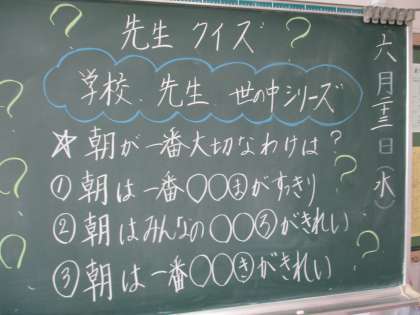 先生クイズ
学校、先生 世の中シリーズ
☆朝が一番大切なわけは?
①朝は一番○○㋮がすっきり
②朝はみんなの○○㋺がきれい
③朝は一番○○㋖がきれい
六月二十三日(水)